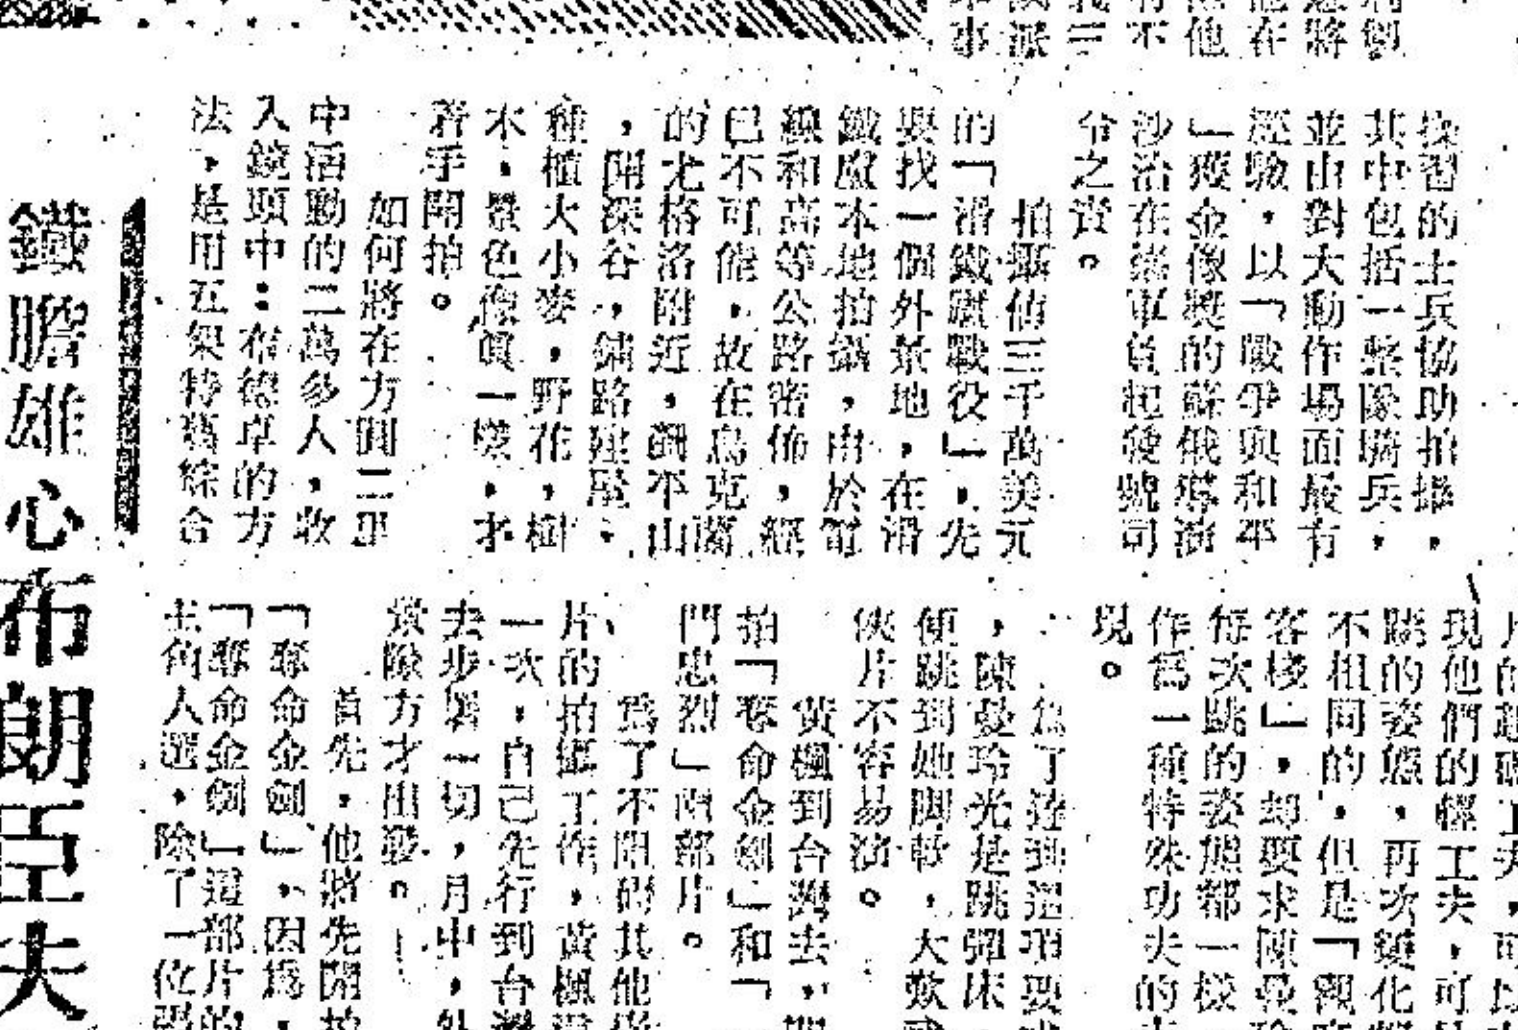 操習的士兵協助拍攝，
其中包括一整隊騎兵，
並由對大動作場面最有
經驗，以「戰爭與和平
」獲金像獎的蘇俄導演
沙治在蓀軍負起發號司
令之責。
拍攝佔三千萬美元
的「滑鐵盧戰役」，先
要找一個外景地，在滑
鐵盧本地拍攝，由於電
線和高等公路密佈，經
已不可能，故在烏克蘭
的尤格洛附近，剷平山
，開深谷，鋪路建屋，
種植大小麥，野花，樹
木，景色像眞一樣，才
着手開拍。
如何將在方圓二里
中活動的二萬多人，收
入鏡頭中：布德卓的方
法，是用五架特舊綜合
鐵膽雄心布朗臣夫
現他們的輕工夫，可
跳的姿態，再次變化
不相同的，但是「
客棧」，却要求陳曼
每次跳的姿態都一樣
作爲一種特殊功夫的
現。
爲了達到這項要
，陳曼玲光是跳彈床
便跳到她脚軟，大歎
俠片不容易演。
黃楓到台灣去，
拍「奪命金劍」和「
門忠烈」兩部片。
爲了不阻碍其他
片的拍攝工作，黃楓
一次，自己先行到台
去步署一切，月中，外
景隊方才出發。
首先，他將先開拍
「奪命金劍」，因爲，
「奪命金劍」這部片的
主角人選，除了一位